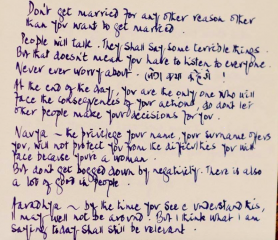 Don't get married for any other reason other
than you want to get married.
People will talk. They shall say some terrible things.
But that doesn't mean you have to listen to everyone.
Never ever worry about - लोग क्या कहेंगे !
At the end of the day, you are the only one who will
face the consequences of your actions, so don't let
other people make your decisions for you.
Navya ~ the privilege your name, your surname offers
you, will not protect you from the difficulties you will
face because you're a woman.
But don't get bogged down by negativity. There is also
a lot of good in people.
Aaradhya ~ by the time you see & understand this,
I may well not be around. But I think what I am
saying today shall still be relevant.